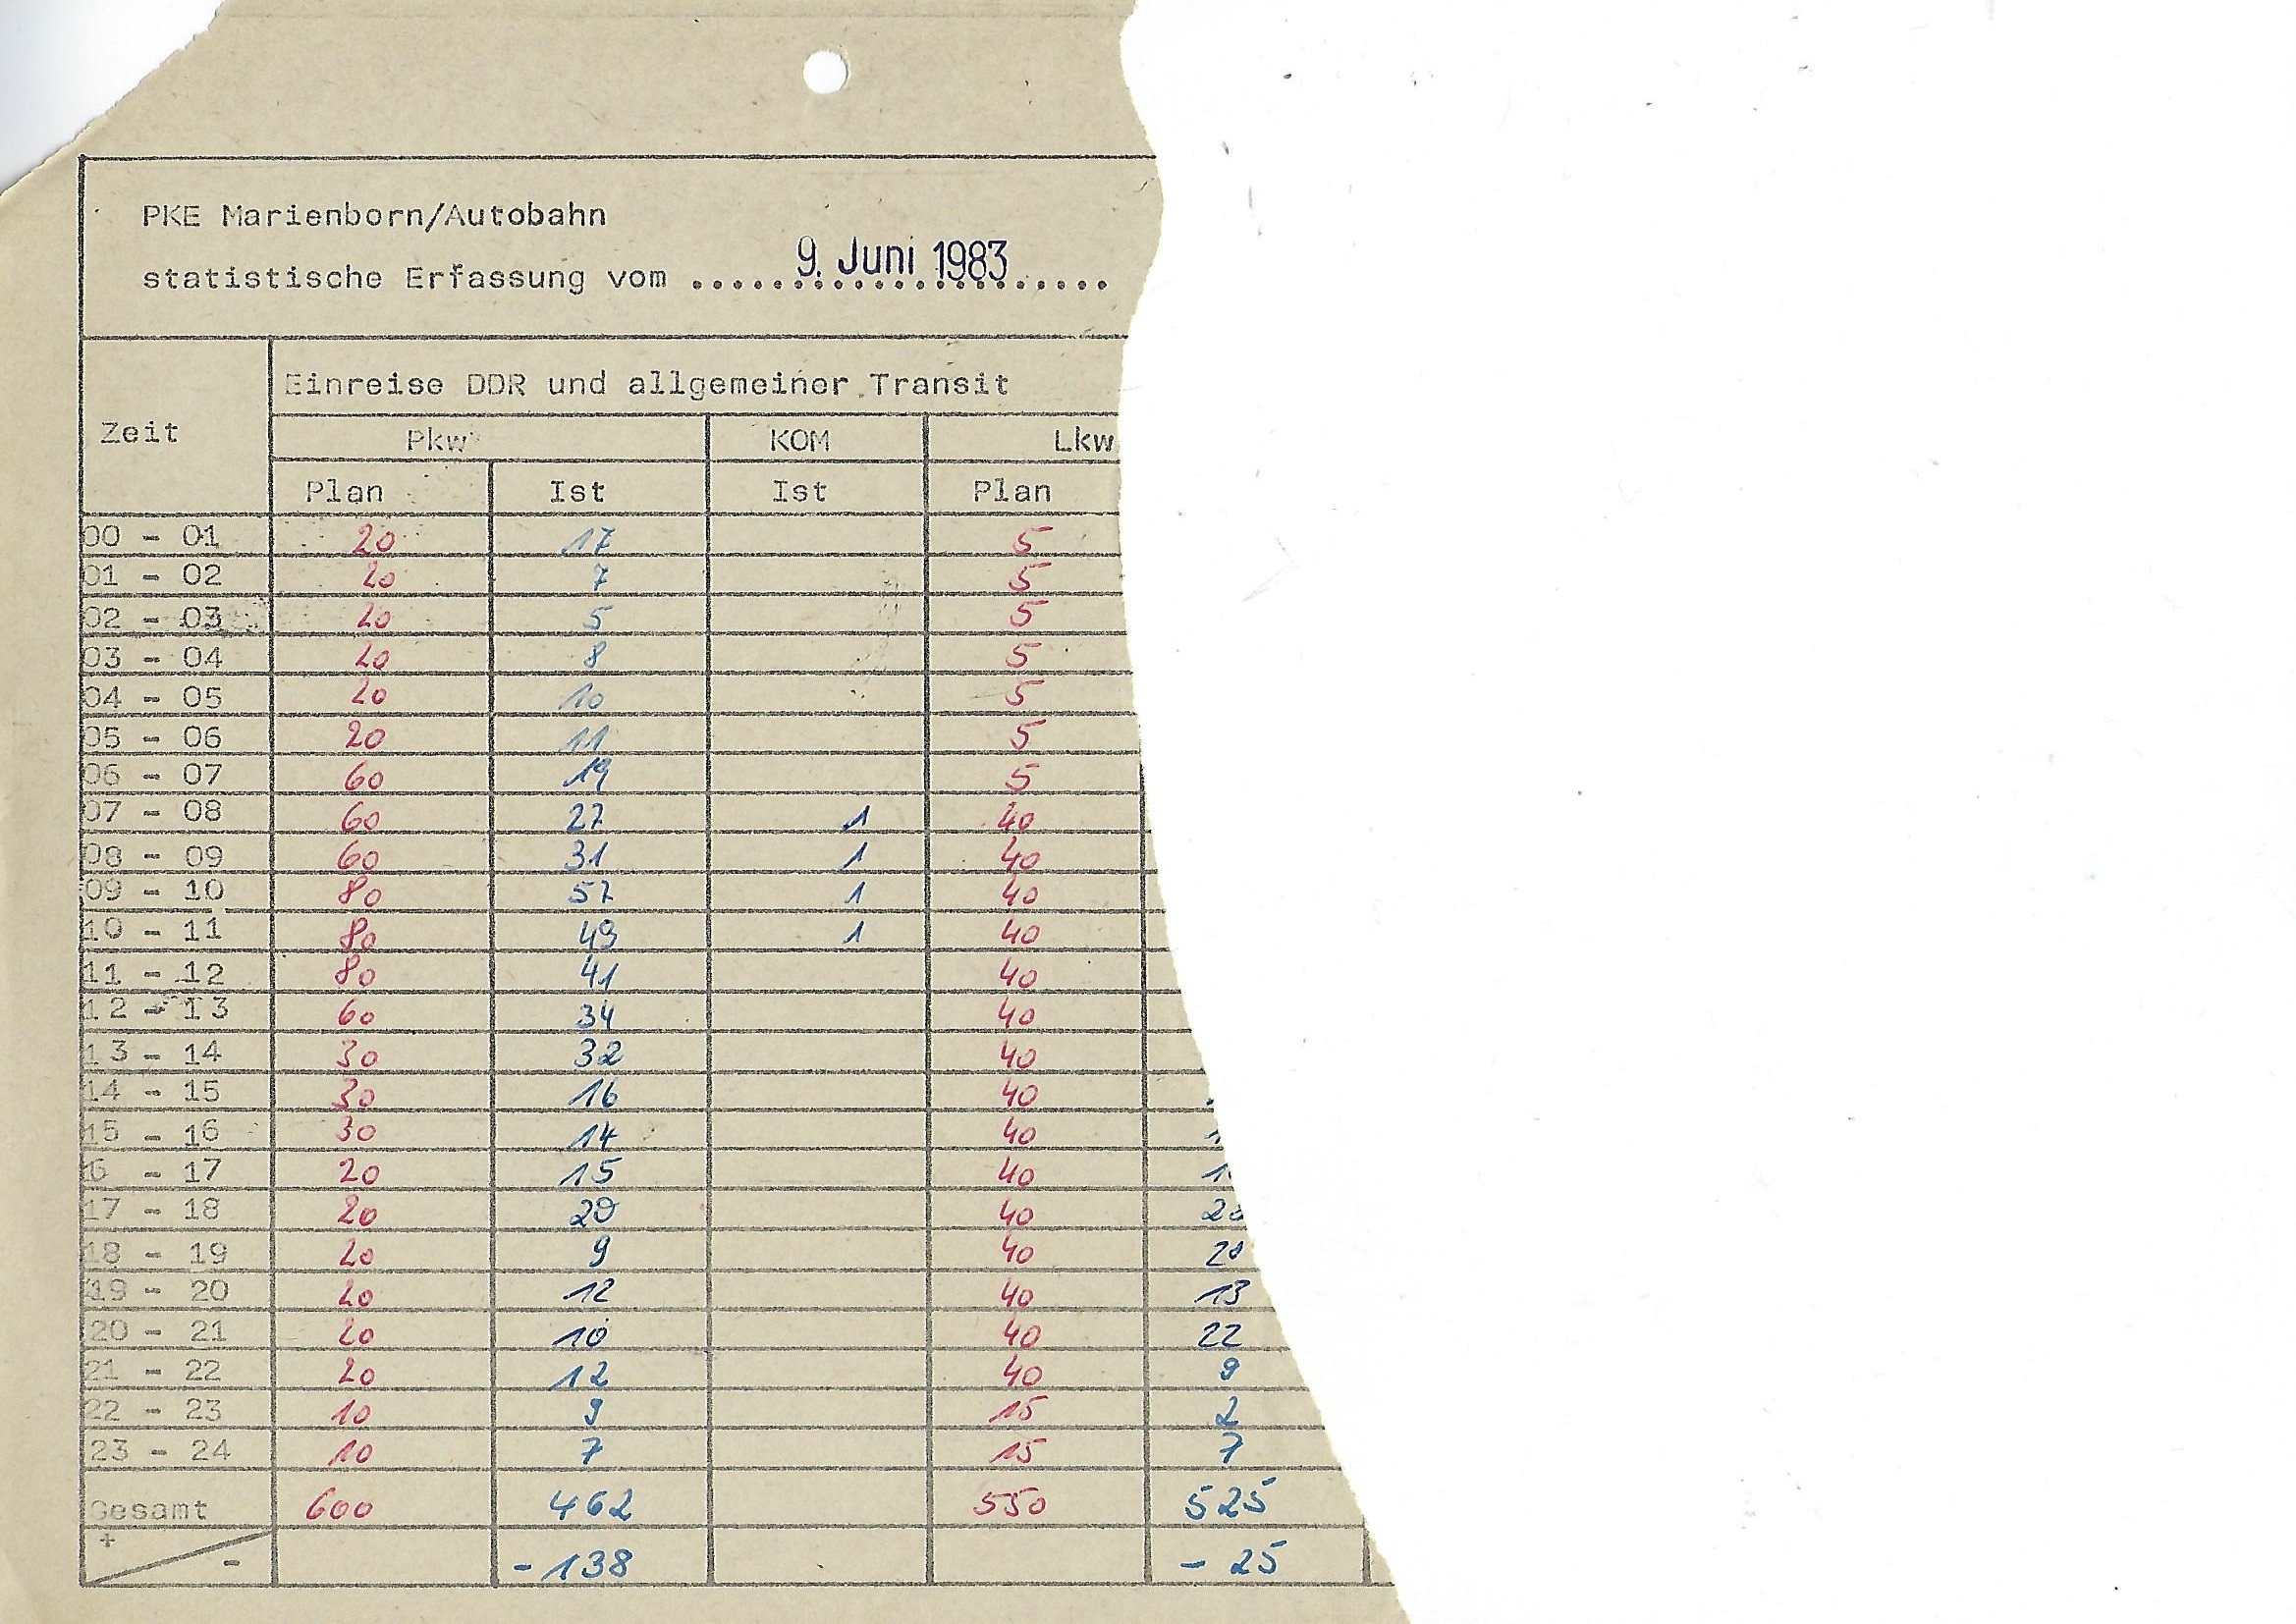 PKE Marienborn/Autobahn
statistische Erfassung vom ..... 9. Juni 1983
Einreise DDR und allgemeiner Transit
Zeit Pkw KOM Lkw
Plan Ist Ist Plan
00 - 01 20 17 5
01 - 02 20 7 5
02 - 03 20 5 5
03 - 04 20 8 5
04 - 05 20 10 5
05 - 06 20 11 5
06 - 07 60 19 5
07 - 08 60 27 1 40
08 - 09 60 31 1 40
09 - 10 80 57 1 40
10 - 11 80 49 1 40
11 - 12 80 41 40
12 - 13 60 34 40
13 - 14 30 32 40
14 - 15 30 16 40
15 - 16 30 14 40
6 - 17 20 15 40
17 - 18 20 20 40
18 - 19 20 9 40
19 - 20 20 12 40 13
20 - 21 20 10 40 22
21 - 22 20 12 40 9
22 - 23 10 9 15 2
23 - 24 10 7 15 7
Gesamt 600 462 550 525
+ - -138 - 25